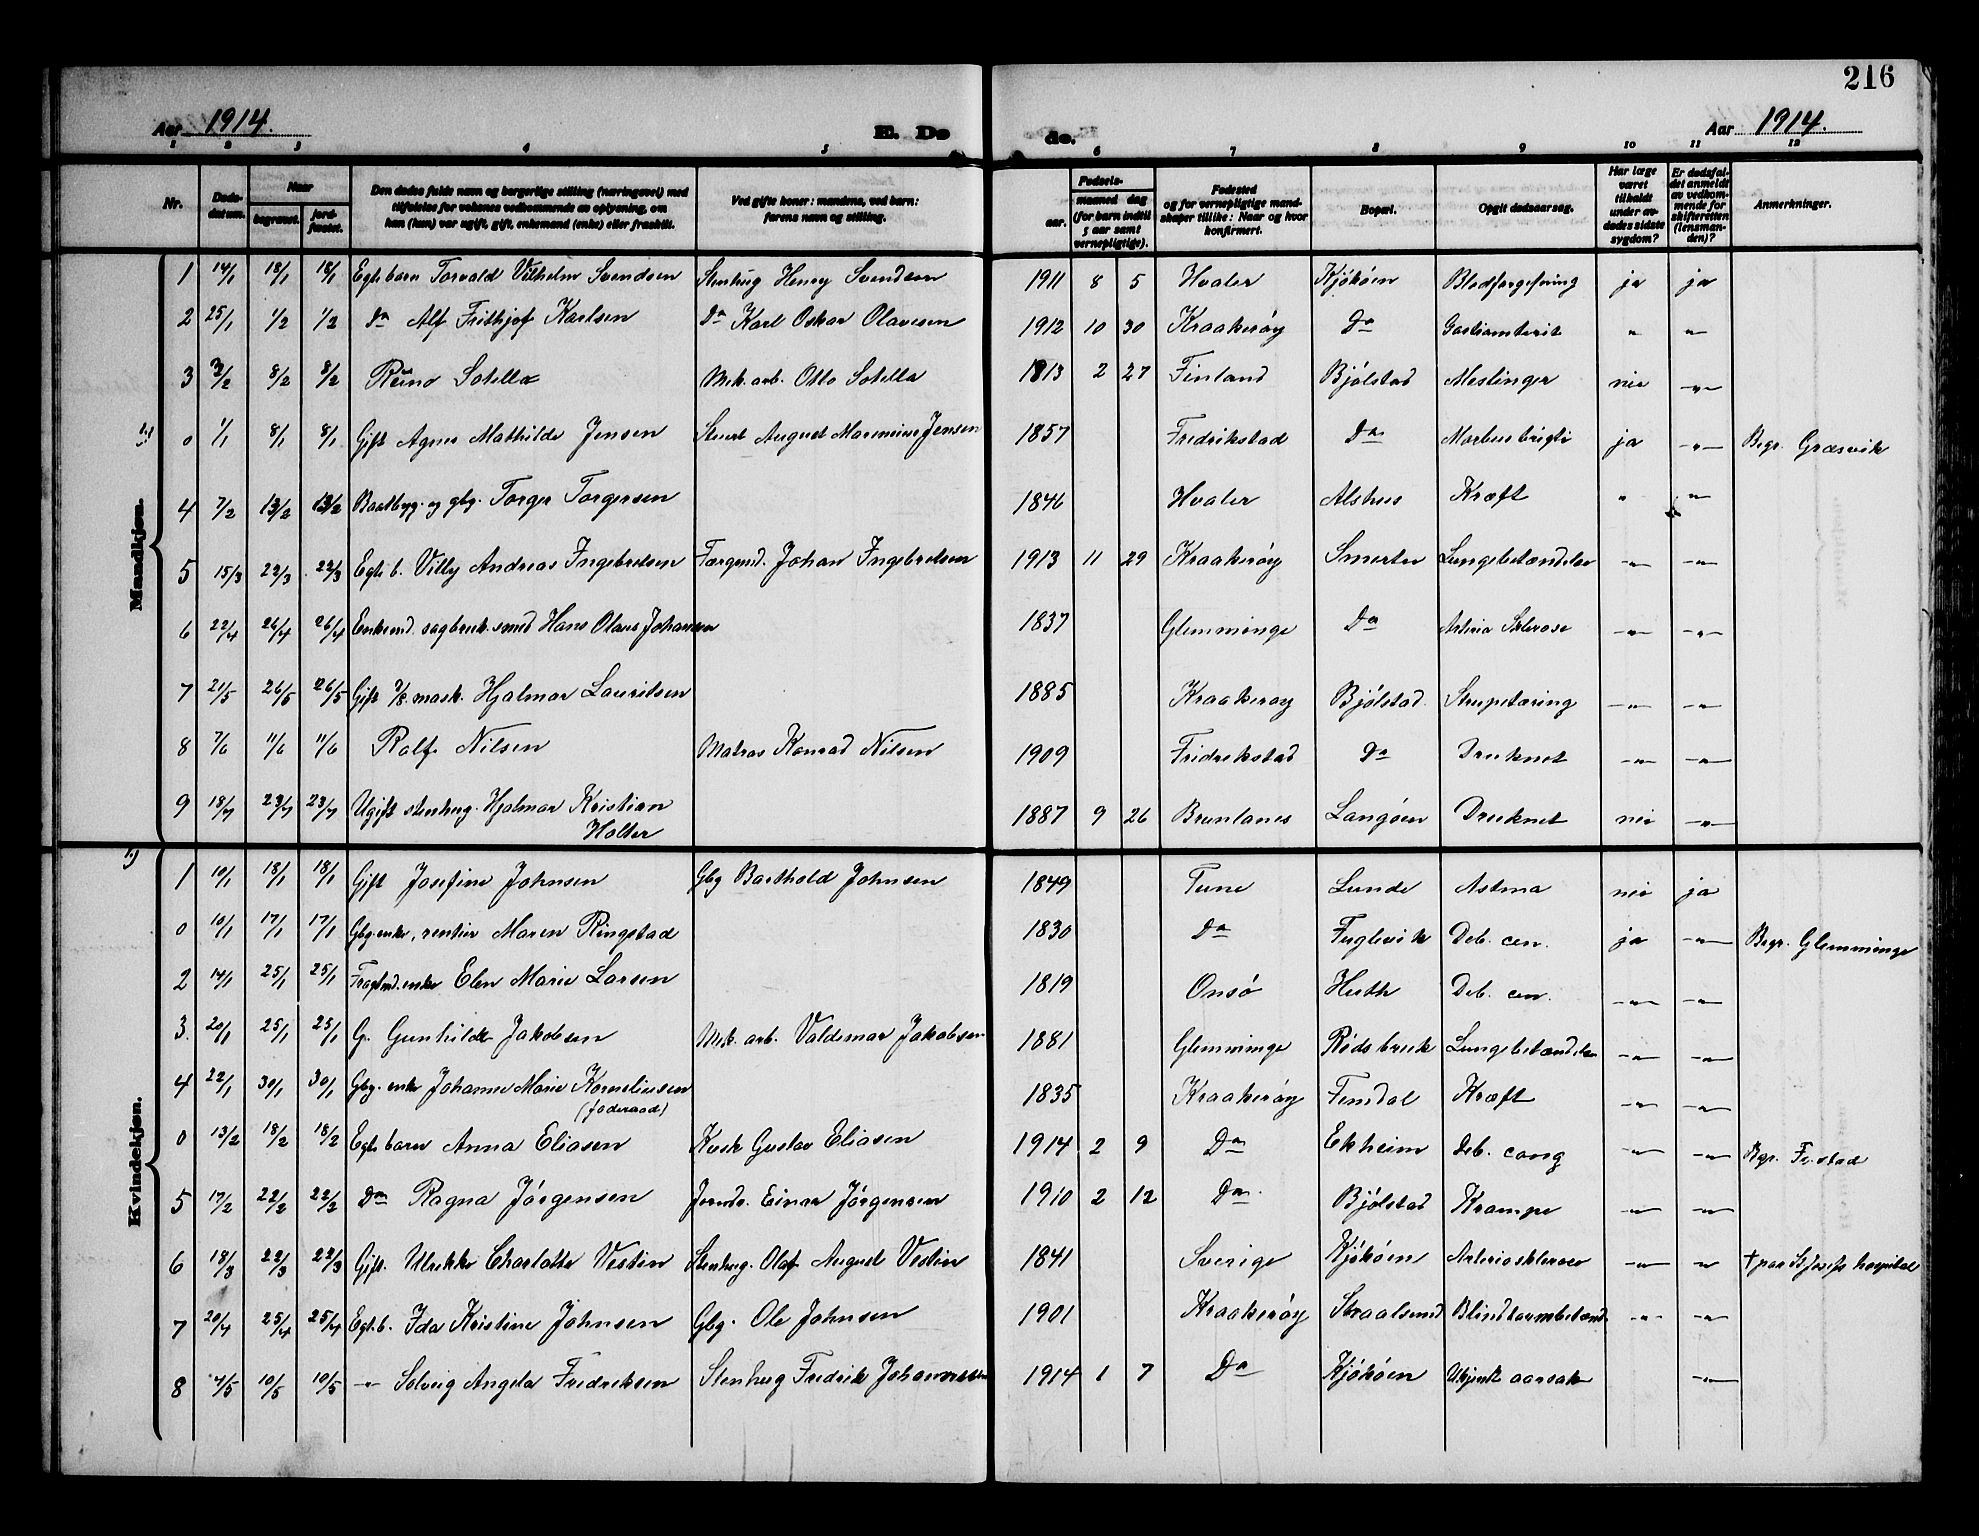 216
Aar 1914. E. Dø
de. Aar 1914.
1 2 3 4 5 6 7 8 9 10 11 12
Nr. Døds-datum. Naar begravet. jord-fæstet. Den dødes fulde navn og borgerlige stilling (næringsvei) med tilføielse for voksnes vedkommende av oplysning, om han (hun) var ugift, gift, enkemand (enke) eller fraskilt. Ved gifte koner: mandens, ved barn: farens navn og stilling. Fødsels- aar. maaned dag (for barn indtil 5 aar samt vernepligtige). Fødested og for vernepligtige mandskaper tillike: Naar og hvor konfirmert. Bopæl. Opgit dødsaarsag. Har læge været tilkaldt under avdødes sidste sygdom? Er dødsfaldet anmeldt av vedkommende for skifteretten (lensmanden)? Anmerkninger.
Mandkjøn.
1 14/1 18/1 18/1 Egte barn Torvald Vilhelm Svendsen Stenhug Henry Svendsen 1911 8 5 Hvaler Kjøkøen Blodforgiftning ja ja
2 25/1 1/2 1/2 Do Alf Frithjof Karlsen Do Karl Oskar Olavesen 1912 10 30 Kraakerøy Do " "
3 3/2 8/2 8/2 Reino Sotella Mek. arb. Otto Sotella 1913 2 27 Finland Bjølstad Meslinger nei -"-
0 1/1 8/1 8/1 Gift Agnes Mathilde Jensen Stuert August Marinius Jensen 1857 Fredrikstad Do Morbus brigti ja -"- Begr. Græsvik
4 7/2 13/2 13/2 Baatbyg. og gbg. Torger Torgersen 1846 Hvaler Alshus Kræft " -"-
5 15/3 22/3 22/3 Egte b. Villy Andreas Ingebretsen Færgemd. Johan Ingebretsen 1913 11 29 Kraakerøy Smerten Lungebetændelse -"- -"-
6 22/4 26/4 26/4 Enkemd. sagbruk. smed Hans Olaus Johansen 1837 Glemminge Do Arterio Sklerose -"- -"-
7 21/5 26/5 26/5 Gift mask. Hjalmar Lauritsen 1885 Kraakerøy Bjølstad Strupetæring -"- -"-
8 7/6 11/6 11/6 Rolf Nilsen Matros Konrad Nilsen 1909 Fridrikstad Do Druknet -"- -"-
9 18/7 23/7 23/7 Ugift stenhug. Hjalmar Kristian 1887 9 26 Brunlanes Langøen Druknet nei -"-
Holter
Kvindekjøn.
1 10/1 18/1 18/1 Gift Josefine Johnsen Gbg Barthold Johnsen 1849 Tune Lunde Astma nei ja
0 10/1 17/1 17/1 Gbg. enke, rentier Maren Ringstad 1830 Do Fuglevik Deb. cen. ja -"- Begr. Glemminge
2 14/1 25/1 25/1 Fragtmd. enke Elen Marie Larsen 1819 Onsø Huth Deb. cen. -"- -"-
3 20/1 25/1 25/1 G. Gunhilde Jakobsen Mek. arb. Valdemar Jakobsen 1881 Glemminge Rødsbruk Lungebetændelse -"- -"-
4 22/1 30/1 30/1 Gbg. enke Johanne Marie Korneliussen 1835 Kraakerøy Femdal Kræft -"- -"-
(føderaad)
0 13/2 18/2 18/2 Egte barn Anna Eliasen Kusk Gustav Eliasen 1914 2 9 Do Ekheim Deb. cong -"- -"- Bgr. Fr.stad
5 17/2 22/2 22/2 Do Ragna Jørgensen Jerndr. Einar Jørgensen 1910 2 12 Do Bjølstad Krampe -"- -"-
6 18/3 22/3 22/3 Gift. Ulrikke Charlotte Vestin Stenhug. Olaf August Vestin 1841 Sverige Kjøkøen Arteriosklerose -"- -"- † paa St Josefs hospital
7 20/4 25/4 25/4 Egte b. Ida Kristine Johnsen Gbg. Ole Johnsen 1901 Kraakerøy Straalsund Blindtarmbetænd. -"- -"-
8 4/5 10/5 10/5 -"- Solveig Angela Fredriksen Stenhug Fredrik Johannessen 1914 1 7 Do Kjøkøen Ukjendt aarsak -"-